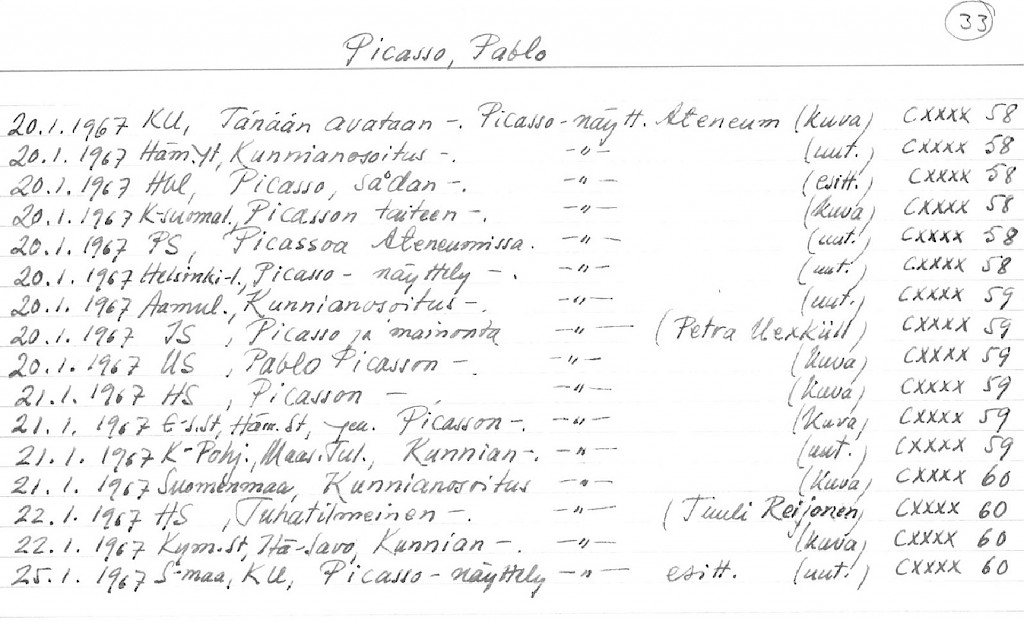 33
Picasso, Pablo
20.1.1967 KU, Tänään avataan -. Picasso-näytt. Ateneum (kuva) CXXXX 58
20.1.1967 Häm.Yt, Kunnianosoitus -. -"- (uut.) CXXXX 58
20.1.1967 Hbl, Picasso, sådan -. -"- (esitt.) CXXXX 58
20.1.1967 K-suomal, Picasson taiteen -. (kuva) CXXXX 58
20.1.1967 PS, Picassoa Ateneumissa. -"- (uut.) CXXXX 58
20.1.1967 Helsinki-l., Picasso-näyttely -. -"- (uut.) CXXXX 58
20.1.1967 Aamul., Kunnianosoitus -. -"- (uut.) CXXXX 59
20.1.1967 IS, Picasso ja mainonta -"- (Petra Uexküll) CXXXX 59
20.1.1967 US, Pablo Picasson -. -"- (kuva) CXXXX 59
21.1.1967 HS, Picasson -. -"- (kuva) CXXXX 59
21.1.1967 E-s.st, Häm.st, ym. Picasson -. -"- (kuva) CXXXX 59
21.1.1967 K-Pohj., Maas.Tul., Kunnian -. -"- (uut.) CXXXX 59
21.1.1967 Suomenmaa, Kunnianosoitus -"- (kuva) CXXXX 60
22.1.1967 HS, Tuhatilmeinen -. -"- (Tuuli Reijonen) CXXXX 60
22.1.1967 Kym.st, Itä-Savo, Kunnian -. -"- (kuva) CXXXX 60
25.1.1967 S-maa, KU, Picasso-näyttely -"- esitt. (uut.) CXXXX 60